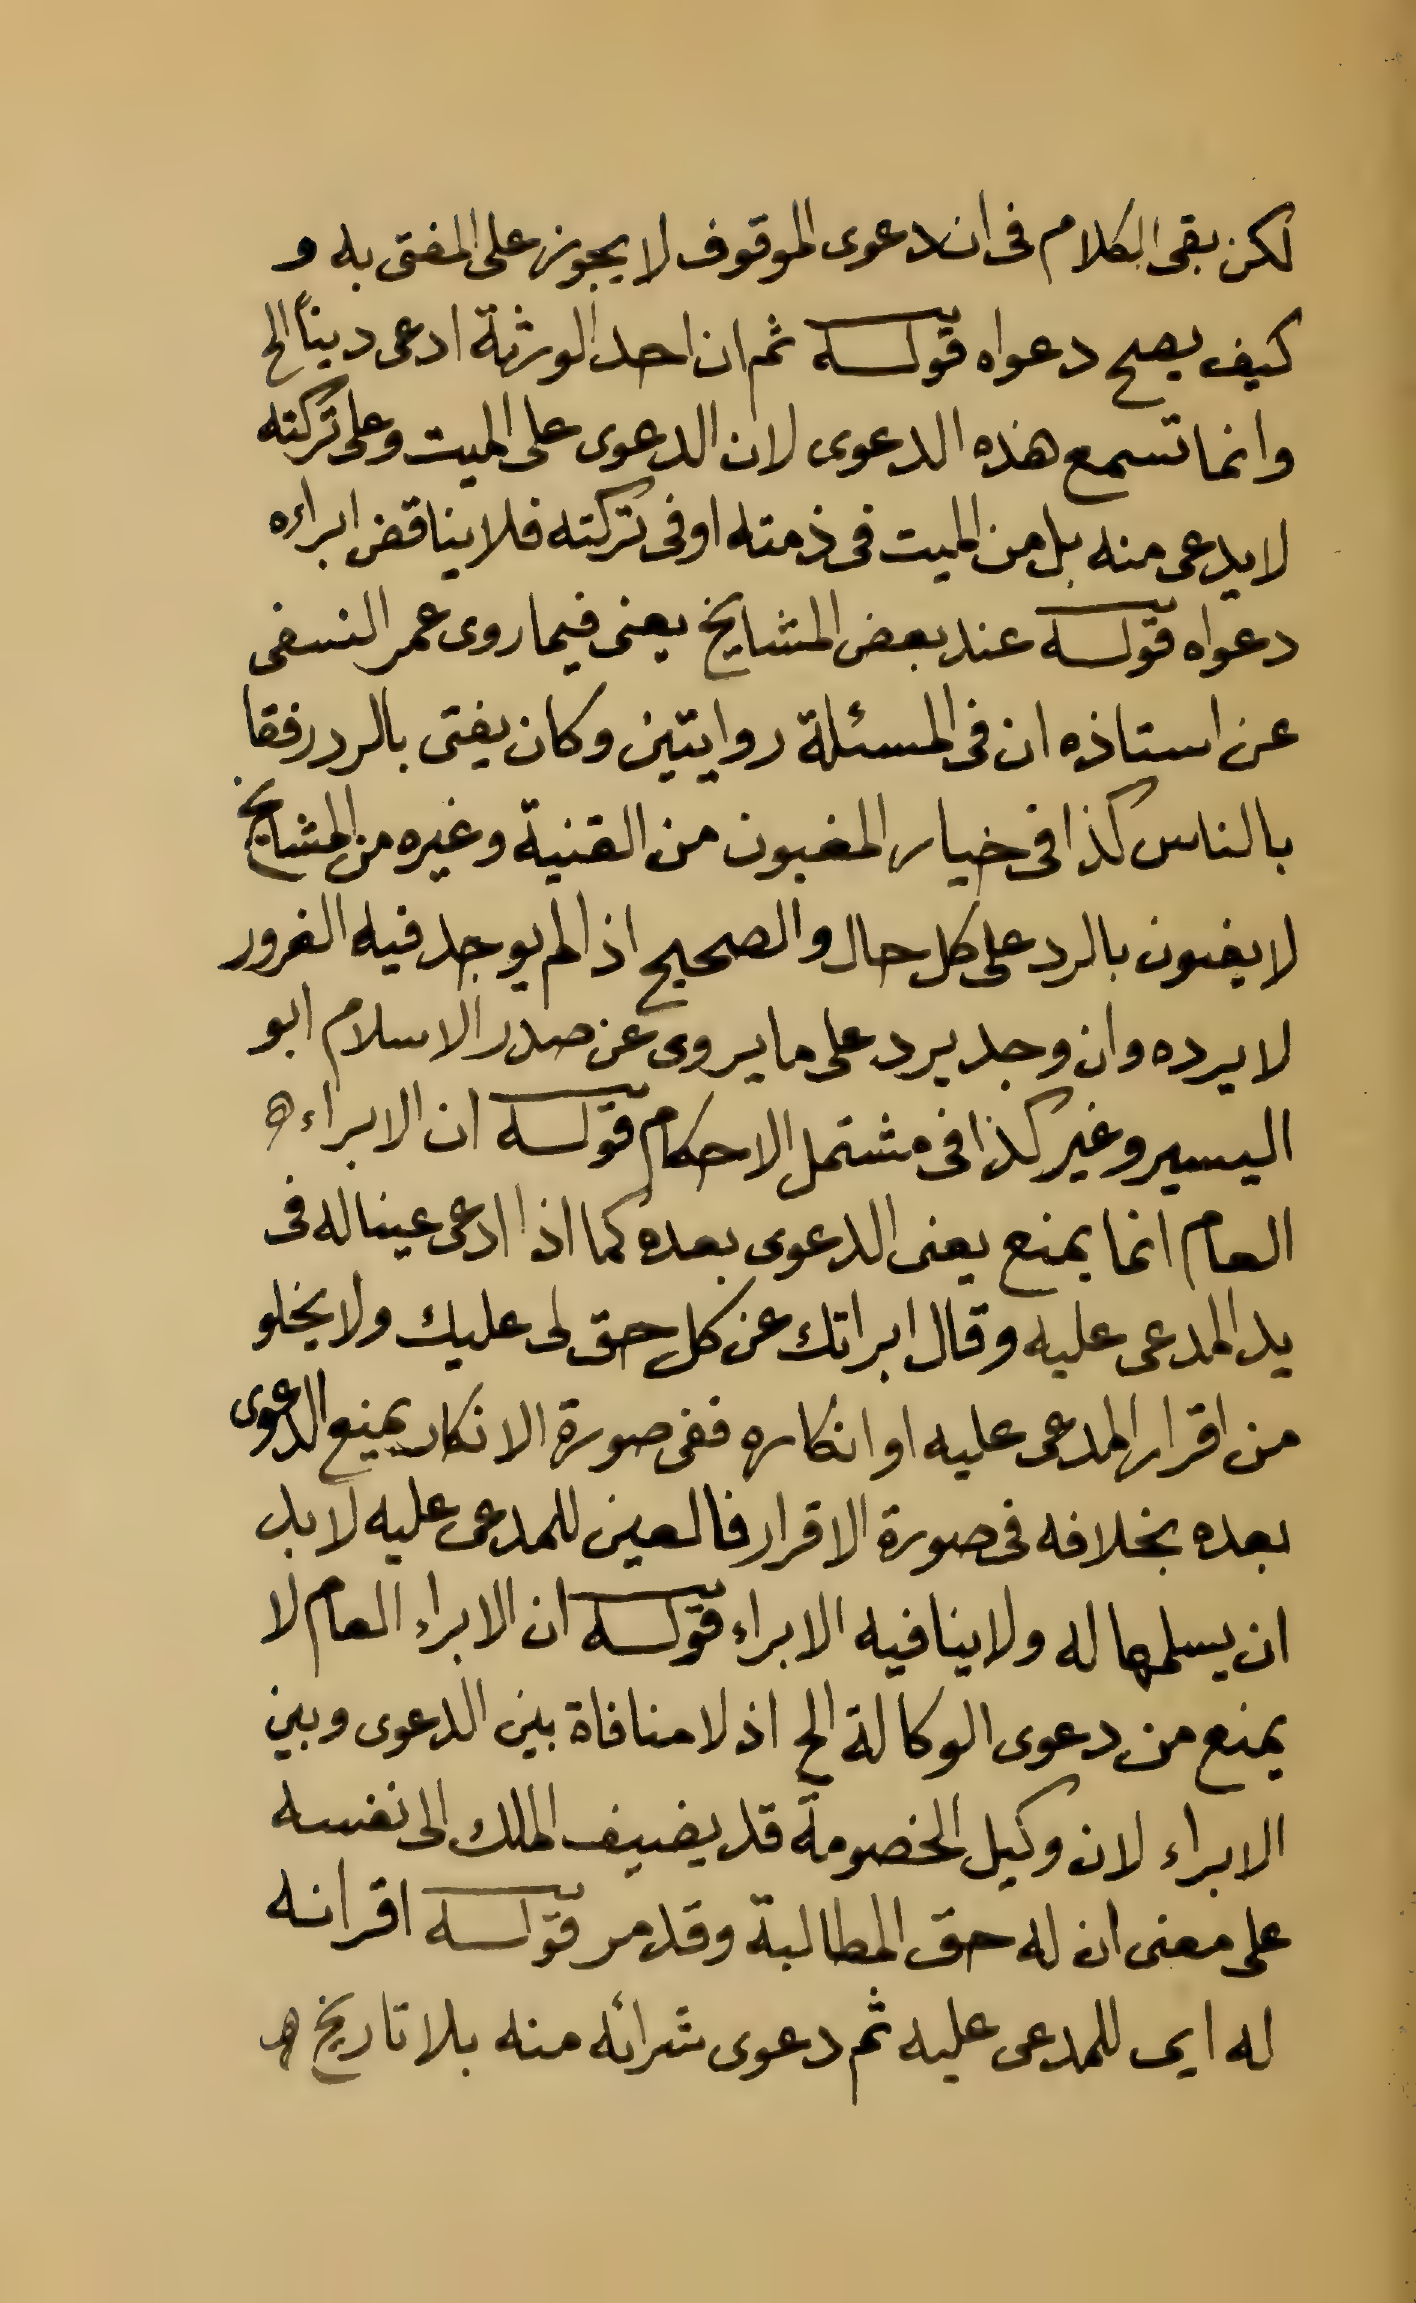 لكن بقى الكلام فى ان دعوى الموقوف لا يجوز على المفتى به و
كيف يصح دعواه قوله ثم ان احد الورثة ادعى دينًا الخ
وانما تسمع هذه الدعوى لان الدعوى على الميت وعلى تركته
لا يدعى منه بل من الميت فى ذمته او فى تركته فلا يناقض ابراءه
دعواه قوله عند بعض المشايخ يعنى فيما روى عمر النسفى
عن استاذه ان فى المسئلة روايتين وكان يفتى بالرد رفقا
بالناس كذا فى خيار المغبون من القنية وغيره من المشايخ
لا يفتون بالرد على كل حال والصحيح اذا لم يوجد فيه الغرور
لا يرده وان وجد يرد على ما يروى عن صدر الاسلام ابو
اليسير وغير كذا فى مشتمل الاحكام قوله ان الابراء
العام انما يمنع يعنى الدعوى بعده كما اذا ادعى عينا له فى
يد المدعى عليه وقال ابراتك عن كل حق لى عليك ولا يخلو
من اقرار المدعى عليه او انكاره ففى صورة الانكار يمنع الدعوى
بعده بخلافه فى صورة الاقرار فالعين للمدعى عليه لا بد
ان يسلمها له ولا ينافيه الابراء قوله ان الابراء العام لا
يمنع من دعوى الوكالة الخ اذ لا منافاة بين الدعوى وبين
الابراء لان وكيل الخصومة قد يضيف الملك الى نفسه
على معنى ان له حق المطالبة وقد مر قوله اقر انه
له اى للمدعى عليه ثم دعوى شرائه منه بلا تاريخ